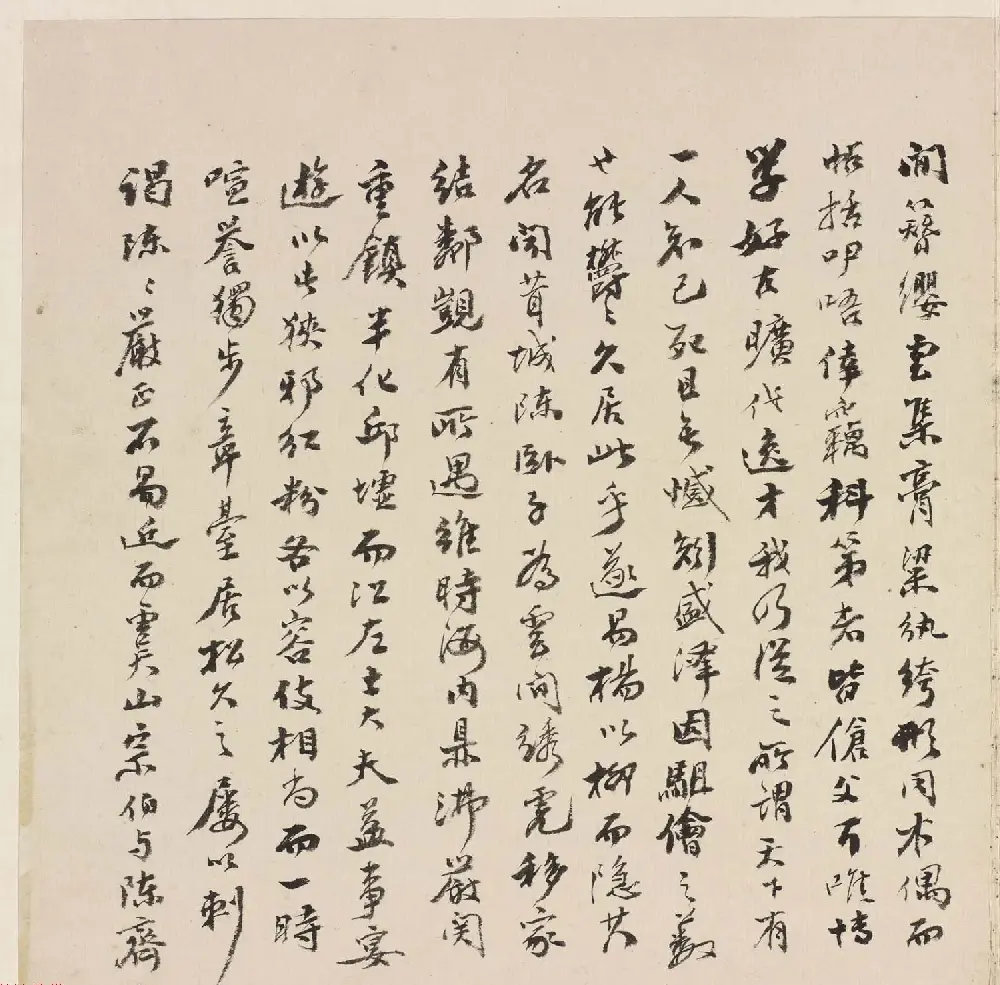 間簪纓雲集膏粱紈綺形同木偶而
帖括呫唔倖竊科第者皆傖父耳唯博
學好古曠代逸才我乃從之所謂天下有
一人知己死且無憾矧盛澤固駔儈之藪
也能鬱〻久居此乎遂易楊以柳而隱其
名聞茸城陳臥子為雲間綉虎移家
結鄰覬有所遇維時海内鼎沸嚴関
重鎮半化邱墟而江左士大夫益事宴
遊以此狹邪紅粉各以容伎相尚而一時
喧誉獨步章臺居松久之屢以刺
謁陳〻嚴正不易近而虞山宗伯与陳齊